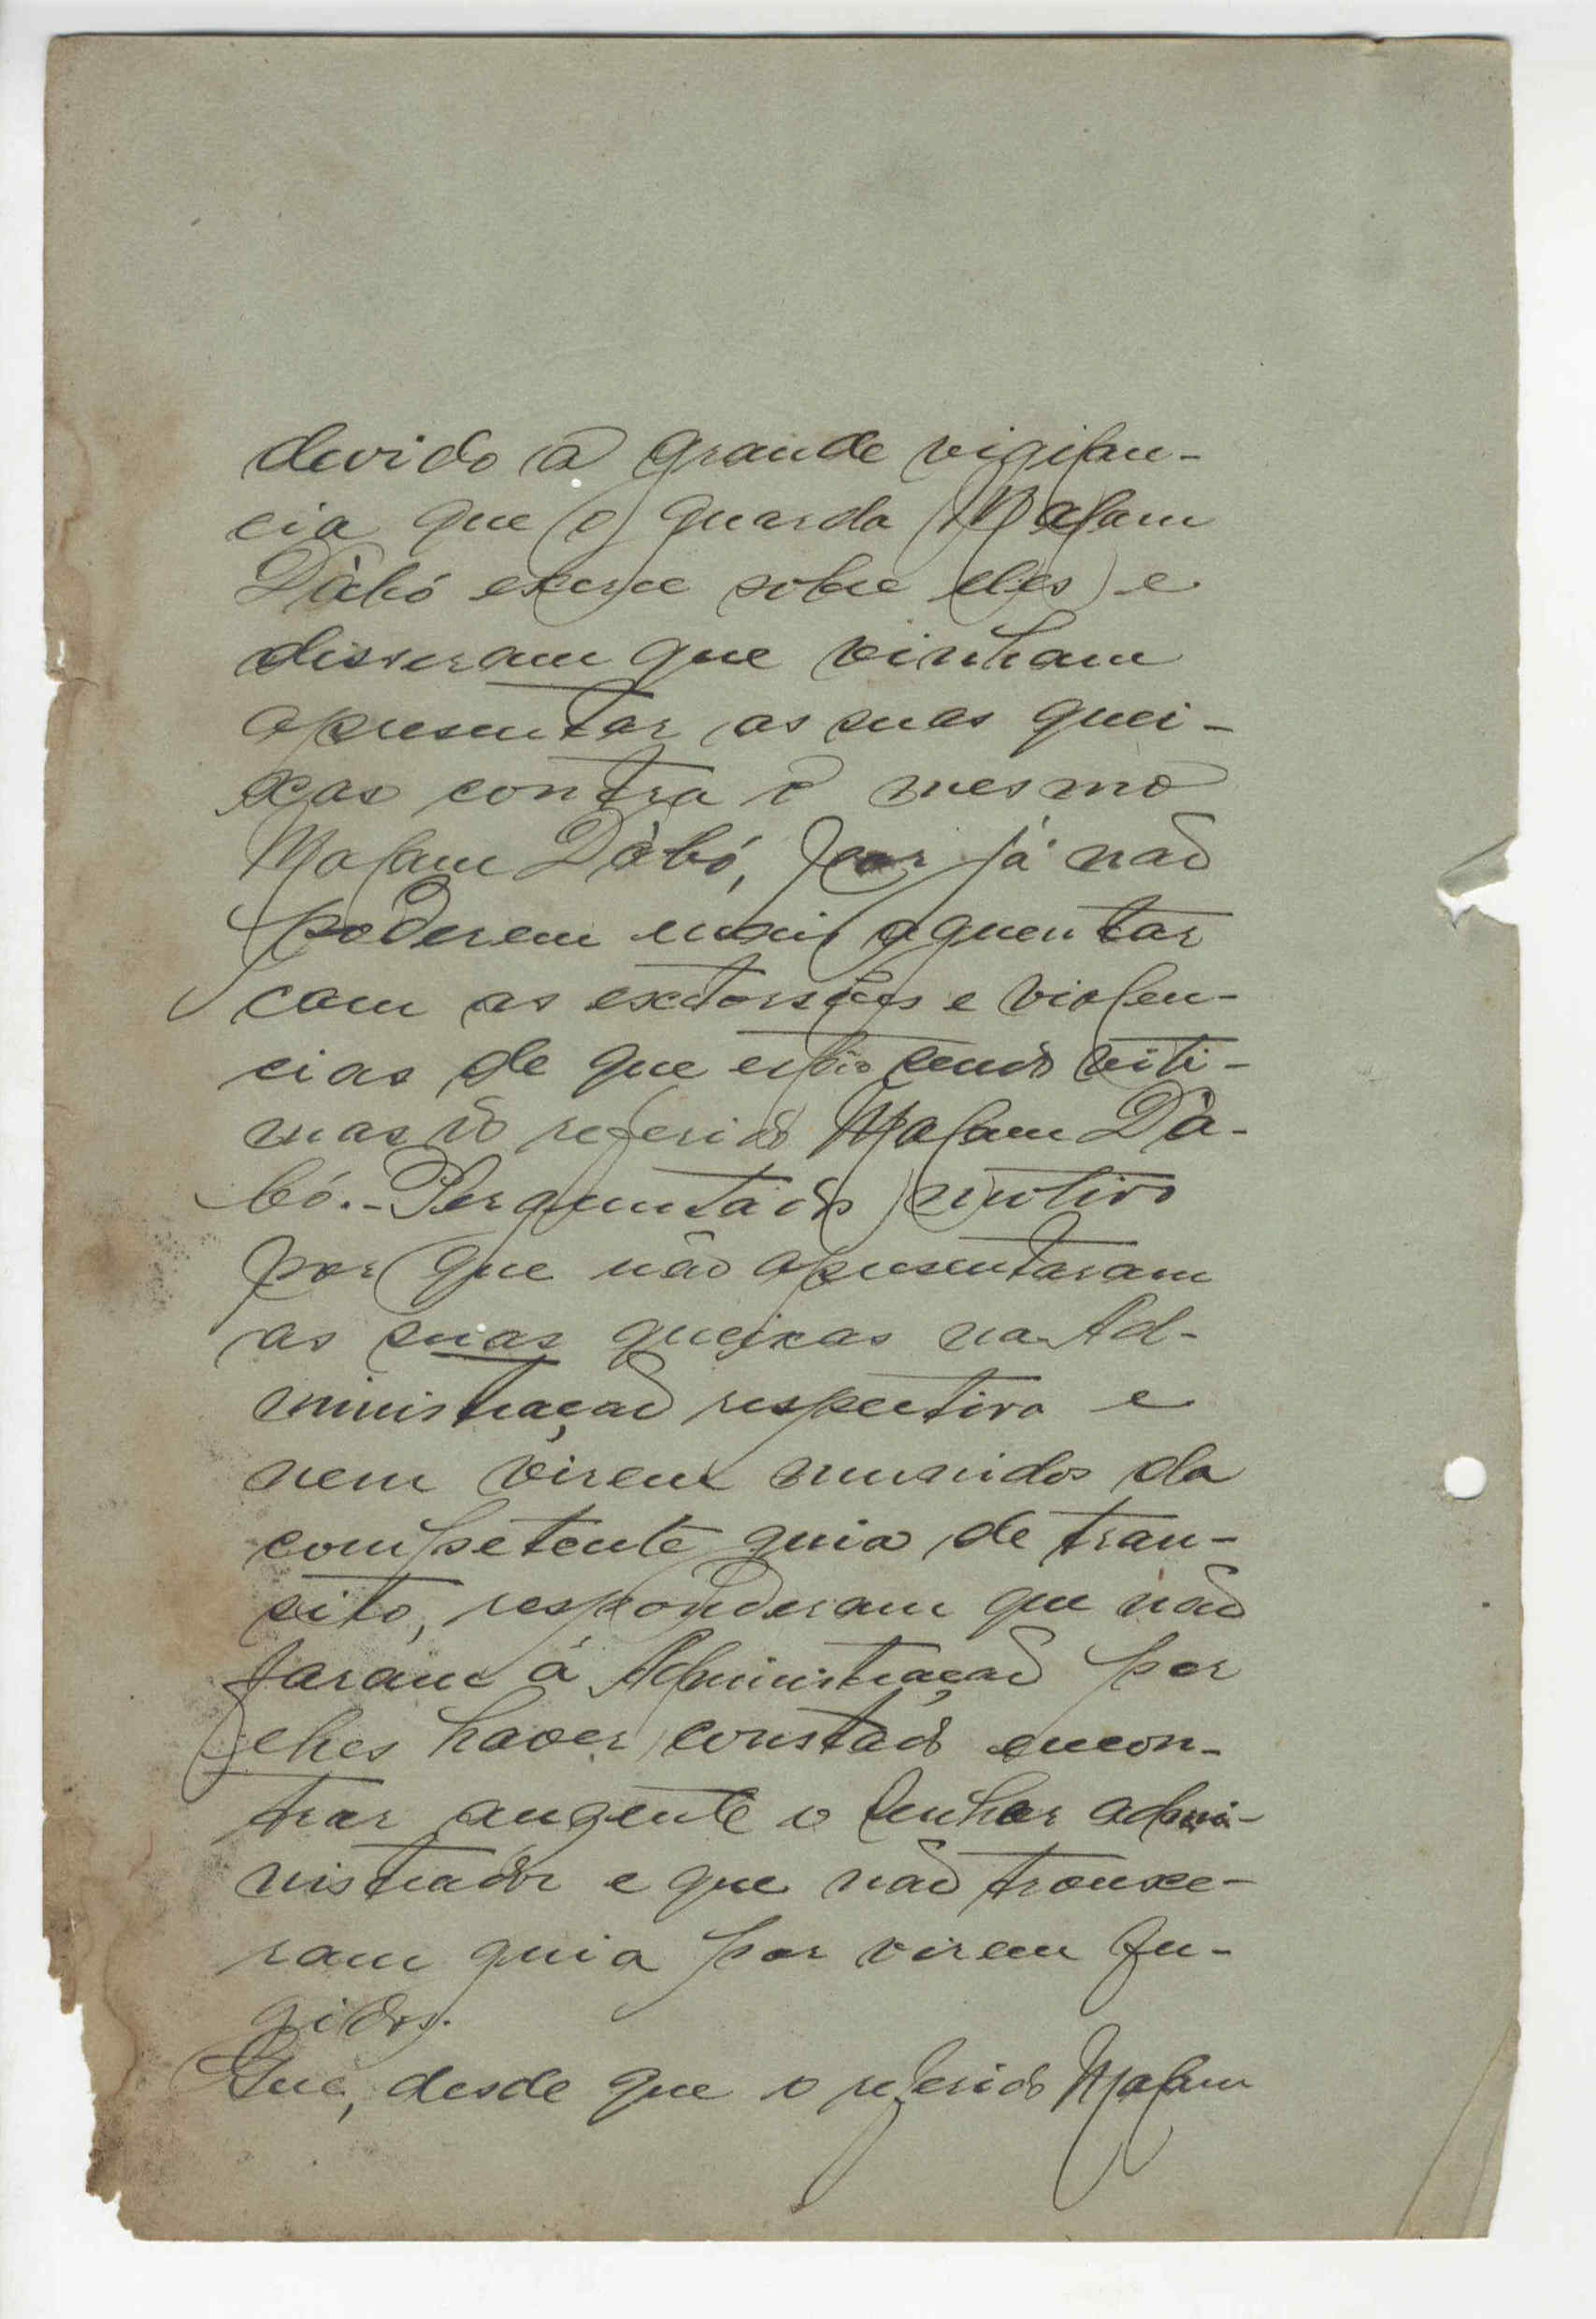 devido á grande vigilan-
cia que o guarda Malam
Dàbó exerce sobre eles e
disseram que vinham
apresentar as suas quei-
xas contra o mesmo
Malam Dàbó, por já não
poderem mais aguentar
com as extorsões e violen-
cias de que estão sendo viti-
mas do referido Malam Dà-
bó.- Perguntado o motivo
por que não apresentaram
as suas queixas na Ad-
ministração respectiva e
nem virem munidos da
competente guia de tran-
sito, responderam que não
foram á Administração por
lhes haver constado encon-
trar auzente o senhor admi-
nistrador e que não trouxe-
ram guia por virem fu-
gidos.
Que, desde que o referido Malam